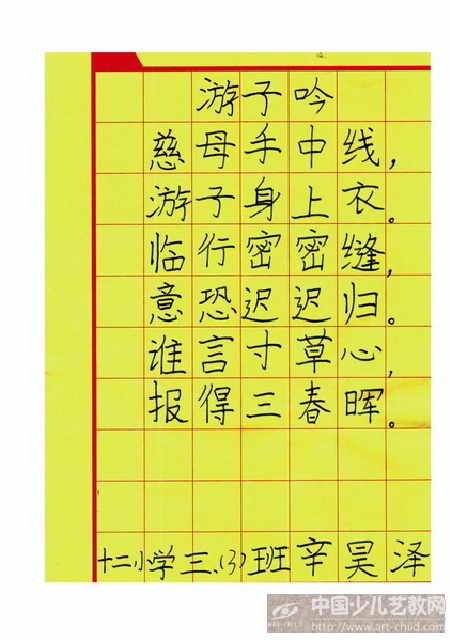 游子吟
慈母手中线，
游子身上衣。
临行密密缝，
意恐迟迟归。
谁言寸草心，
报得三春晖。
十二小学三、(3)班辛昊泽
中国少儿艺教网
http://www.art-child.com